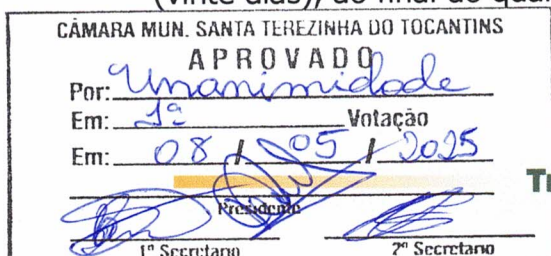 (vinte dias), ao final do qual
CÂMARA MUN. SANTA TEREZINHA DO TOCANTINS
APROVADO
Por: Unanimidade
Em: 1ª Votação
Em: 08 / 05 / 2025
Presidente
1º Secretario 2º Secretario